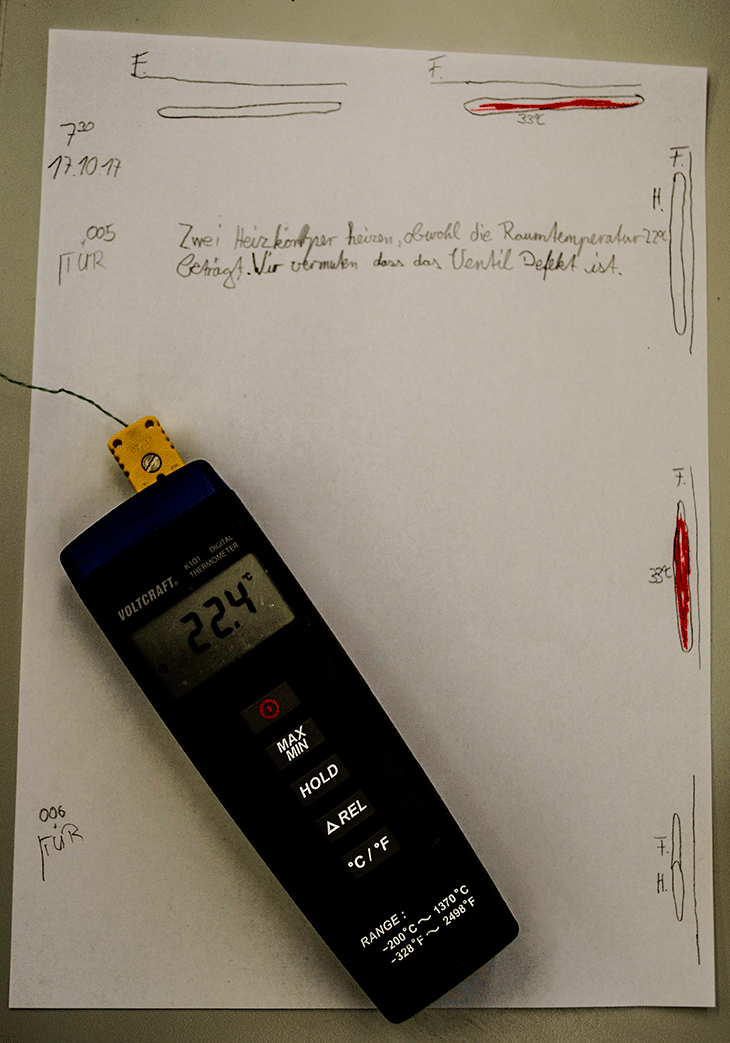 F.
F.
33°C
7³⁰
17.10.17
F.
H.
,005
TÜR
Zwei Heizkörper heizen, obwohl die Raumtemperatur 22°C
beträgt. Wir vermuten dass das Ventil Defekt ist.
F.
33°C
VOLTCRAFT®
K101 DIGITAL
THERMOMETER
22.4 °C
MAX
MIN
HOLD
△ REL
°C / °F
RANGE :
-200°C ~ 1370°C
-328°F ~ 2498°F
006
TÜR
F.
H.